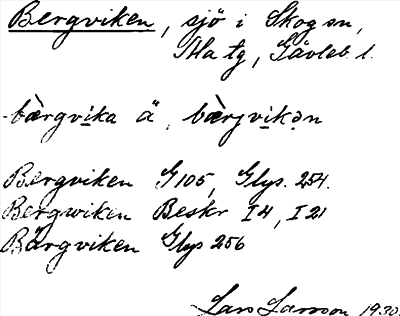 Bergviken, sjö i Skog sn,
Ala tg, Gävleb. l.
bærgvika ä, bærjvikən
Bergviken G105, Glys. 254.
Bergwiken Beskr I4, I21
Bärgviken Glys 256
Lars Larsson 1930.